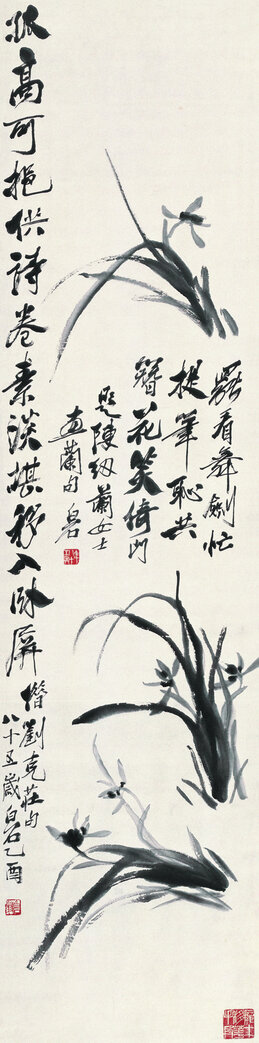 罷看舞劍忙
提筆恥共
簪花笑倚門
題陳紉蘭女士
畫蘭句 白石
孤高可挹供詩卷素淡堪移入臥屏
借劉克莊句
八十五歲白石乙酉